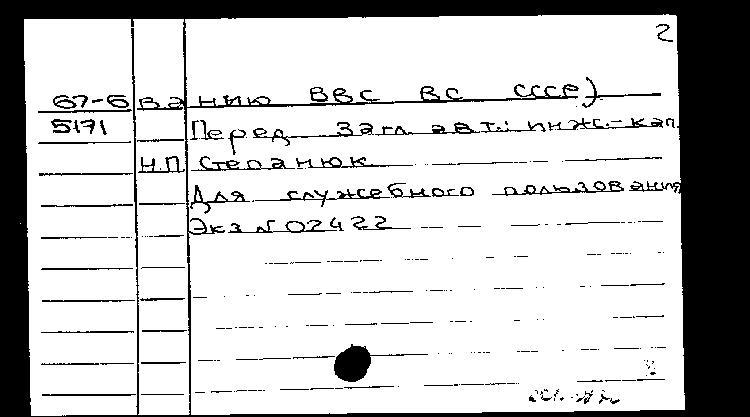 2
67-6 ва нию ВВС ВС СССР)
5171 Перед загл. авт.: инж.-кап.
Н.П. Степанюк.
Для служебного пользования
Экз № 02422